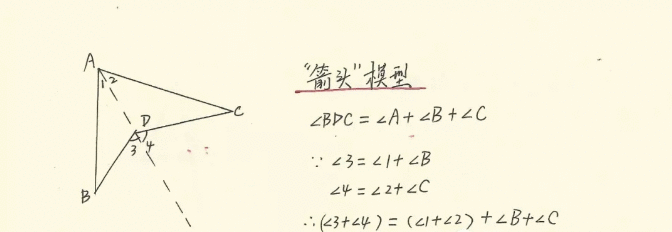 A
1 2
C
D
3 4
B
"箭头"模型
∠BDC = ∠A + ∠B + ∠C
∵ ∠3 = ∠1 + ∠B
∠4 = ∠2 + ∠C
∴ (∠3+∠4) = (∠1+∠2) + ∠B + ∠C